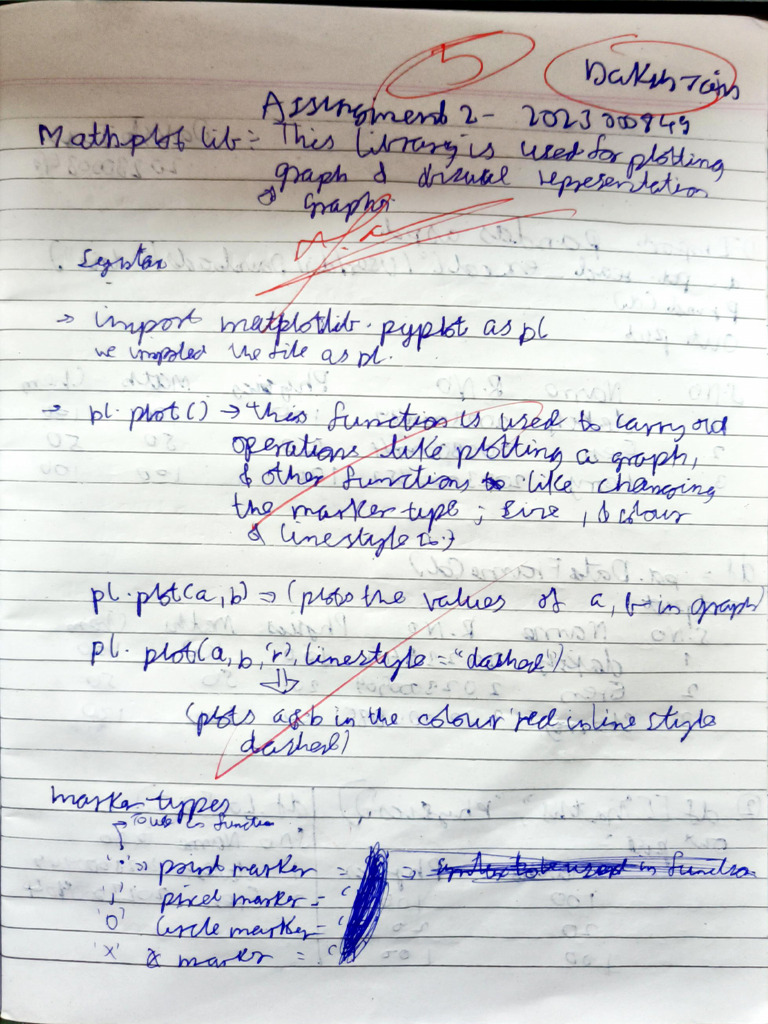 5
Daksh Jain
Assignment 2 - 202300849
Mathplot lib = This library is used for plotting
graph & visual representation
of Graphs
Syntax
→ import matplotlib.pyplot as pl
we impoled the file as pl.
→ pl.plot() → this function is used to carry old
operations like plotting a graph,
& other functions like changing
the marker type, size, & colour
& linestyle
pl.plot(a, b) → (plots the values of a, b in graph)
pl.plot(a, b, 'r', linestyle = "dashed")
(plots a & b in the colour red in line style
dashed)
marker types
To use in function
'.' → point marker =
',' pixel marker =
'O' Circle marker =
'x' x marker =